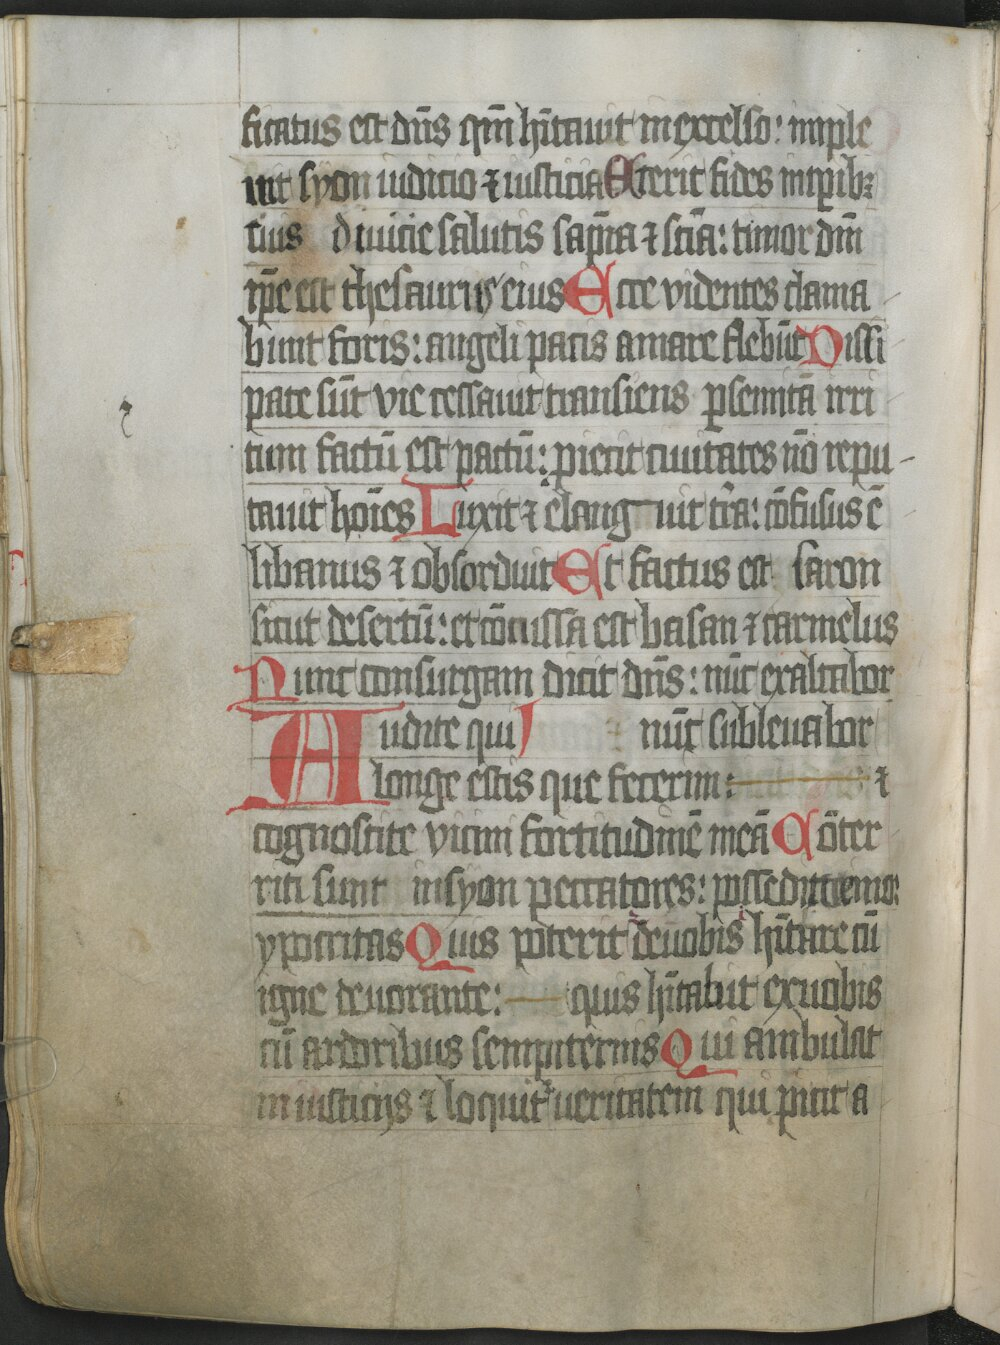 ficatus est dn̄s qm̄ hītauit in excelso: imple
uit syon iudicio ⁊ iusticia Et erit fides in tp̄ibꝫ
tuis diuicie salutis sapīa ⁊ sciā: timor dm̄
ip̄e est thesaurus eius Ecce videntes clama
bunt foris: angeli pacis amare flebūt Dissi
pate sūt vie cessauit transiens ꝑ semitā irri
tum factū est pactū: ꝑiecit ciuitates nō repu
tauit hoīes Luxit ⁊ elanguit tr̄a: cōfusus ē
libanus ⁊ obsorduit Et factus est saron
sicut desertū: et cōcussa est basan ⁊ carmelus
Nunc consurgam dicit dn̄s: nūc exaltabor
nūc subleuabor
Audite qui
longe estis que fecerim: ⁊
cognoscite vicini fortitudinē meā Cōter
riti sunt in syon peccatores: possedit tremor
ypocritas Quis poterit de uobis hītare cū
igne deuorante: quis hītabit ex uobis
cū ardoribus sempiternis Qui ambulat
in iusticijs ⁊ loquit᷑ ueritatem qui ꝓicit a